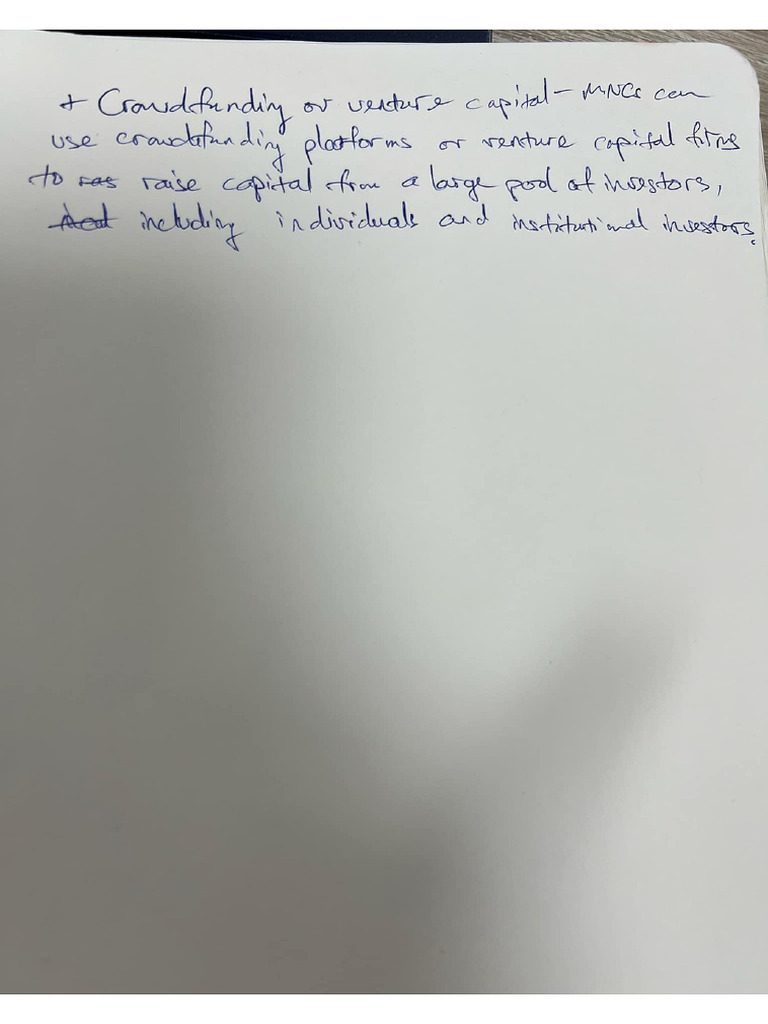 + Crowdfunding or venture capital - MNCs can
use crowdfunding platforms or venture capital firms
to raise capital from a large pool of investors,
including individuals and institutional investors.